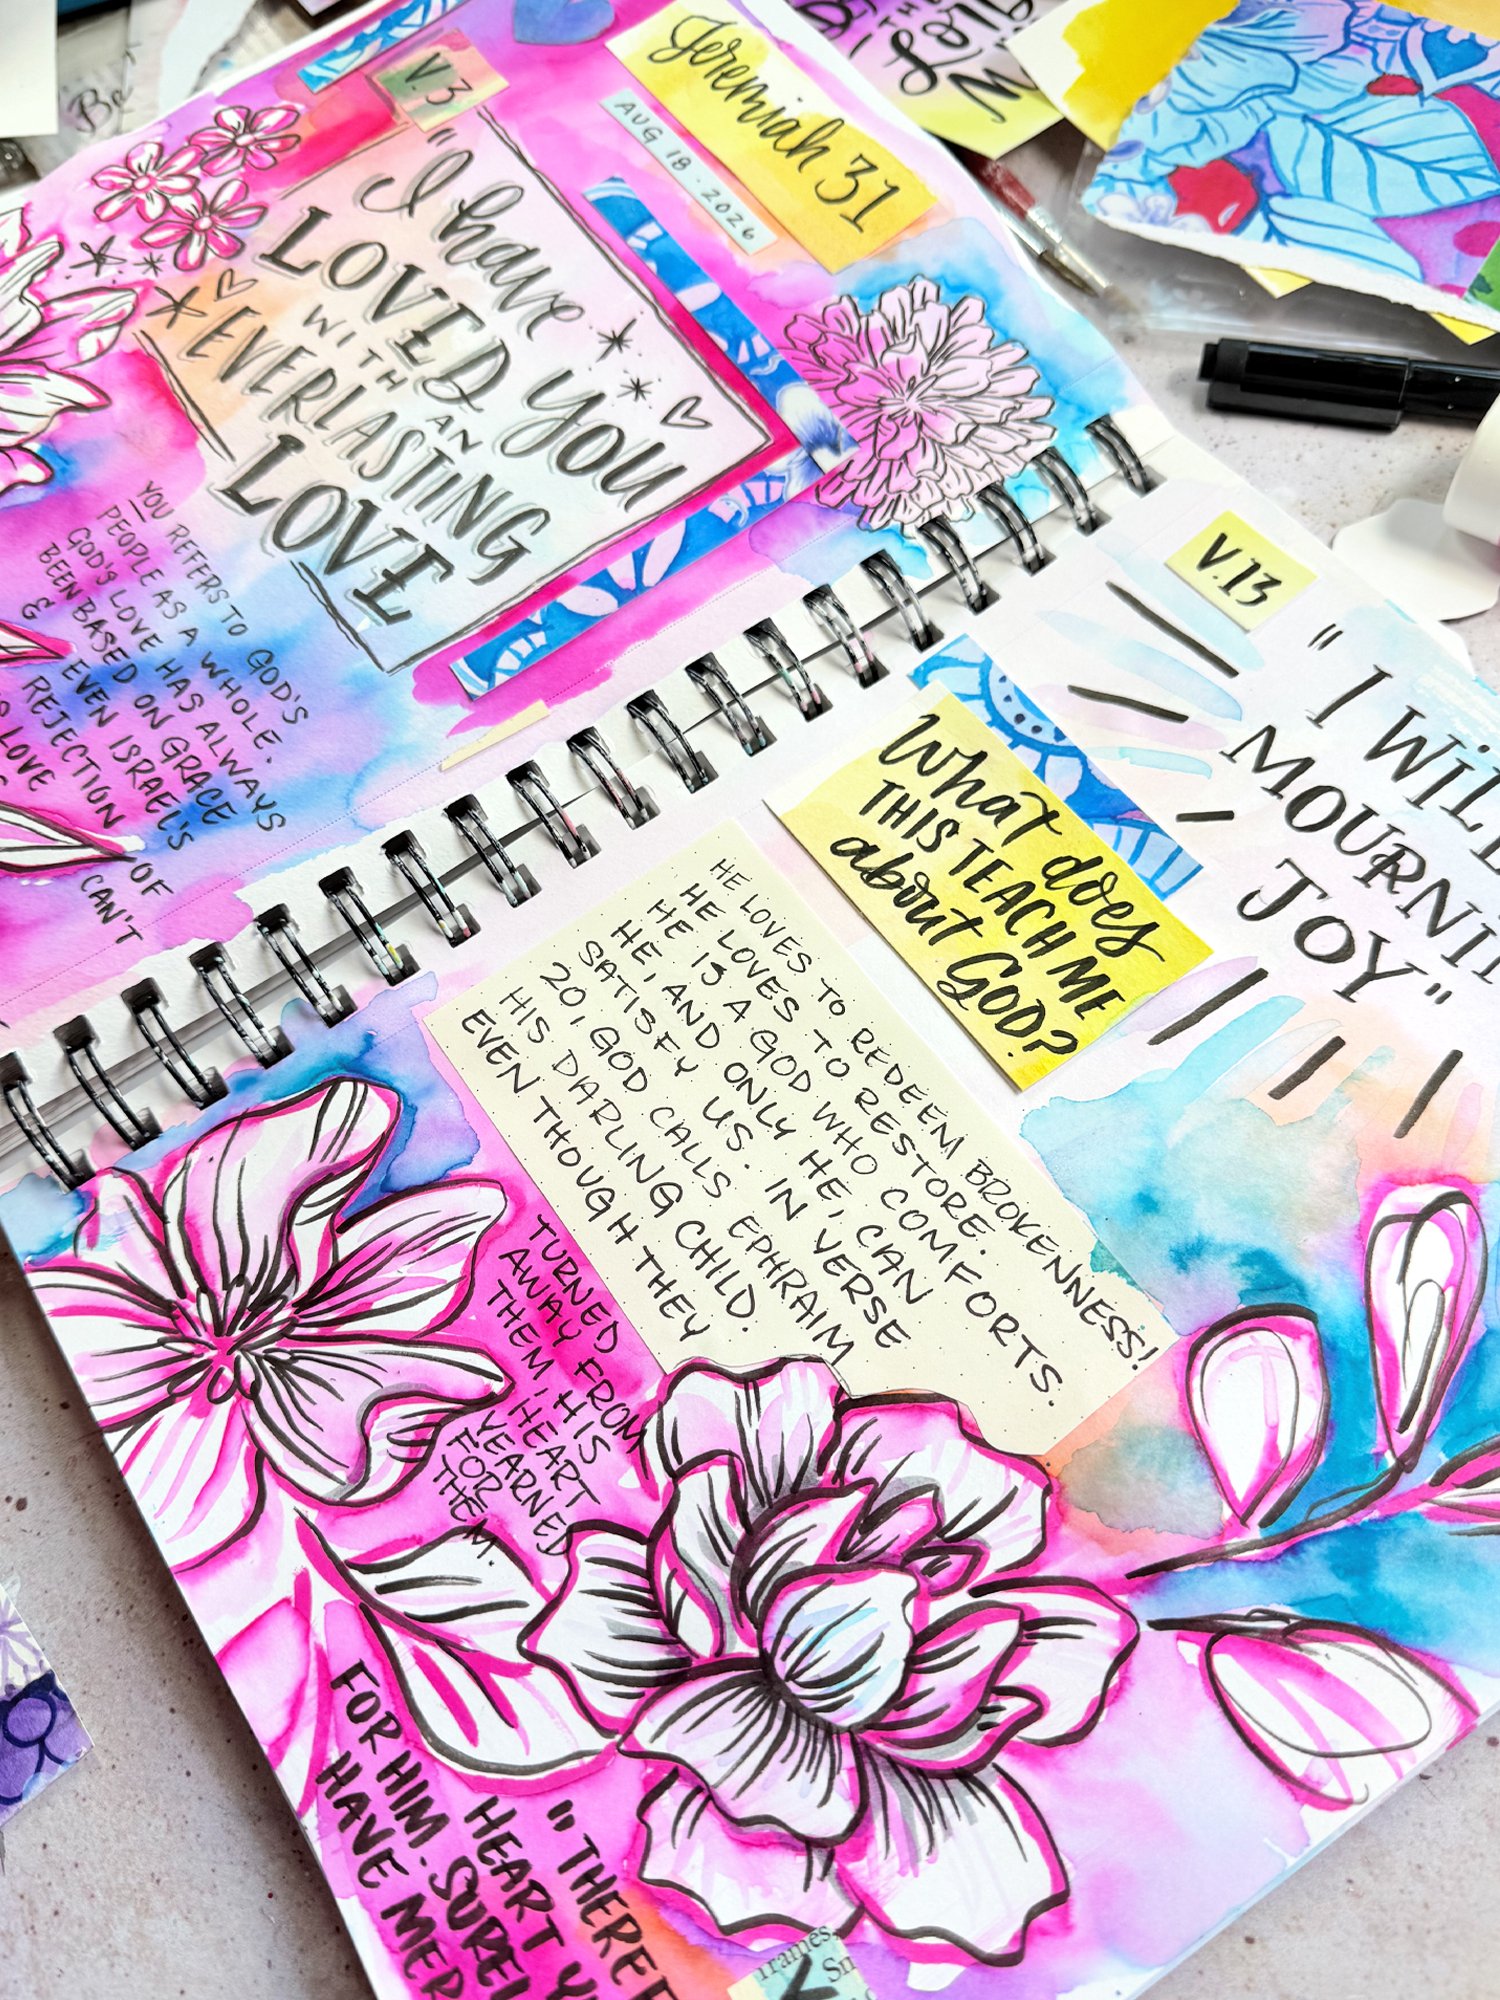 Jeremiah 31
AUG 18 · 2026
V.3
"I have
LOVED YOU
WITH AN
EVERLASTING
LOVE
YOU REFERS TO GOD'S
PEOPLE AS A WHOLE.
GOD'S LOVE HAS ALWAYS
BEEN BASED ON GRACE
& EVEN ISRAEL'S
REJECTION OF
LOVE CAN'T
V.13
"I WILL
MOURNI
JOY"
What does
THIS TEACH ME
about GOD?
HE LOVES TO REDEEM BROKENNESS!
HE LOVES TO RESTORE.
HE IS A GOD WHO COMFORTS.
HE, AND ONLY HE, CAN
SATISFY US. IN VERSE
20, GOD CALLS EPHRAIM
HIS DARLING CHILD.
EVEN THOUGH THEY
TURNED
AWAY FROM
THEM, HIS
HEART
YEARNED
FOR
THEM.
"THEREF
HEART Y
FOR HIM. SUREL
HAVE MER
frames.
Be